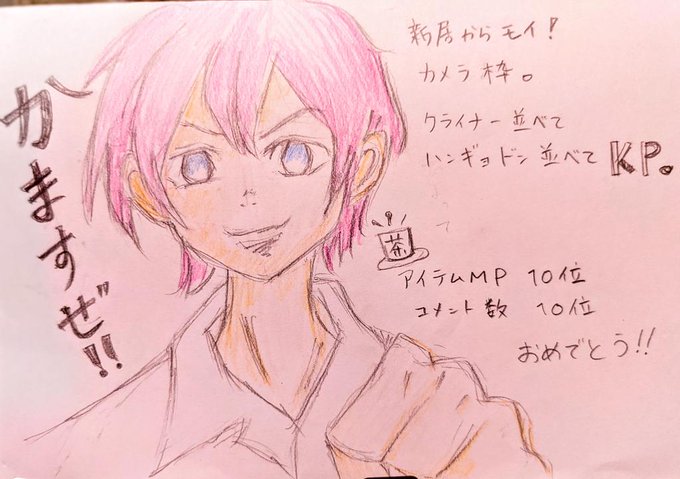 かますぜ!!
新居からモイ!
カメラ枠。
クライナー並べて
ハンギョドン並べて KP。
茶
アイテムMP 10位
コメント数 10位
おめでとう!!